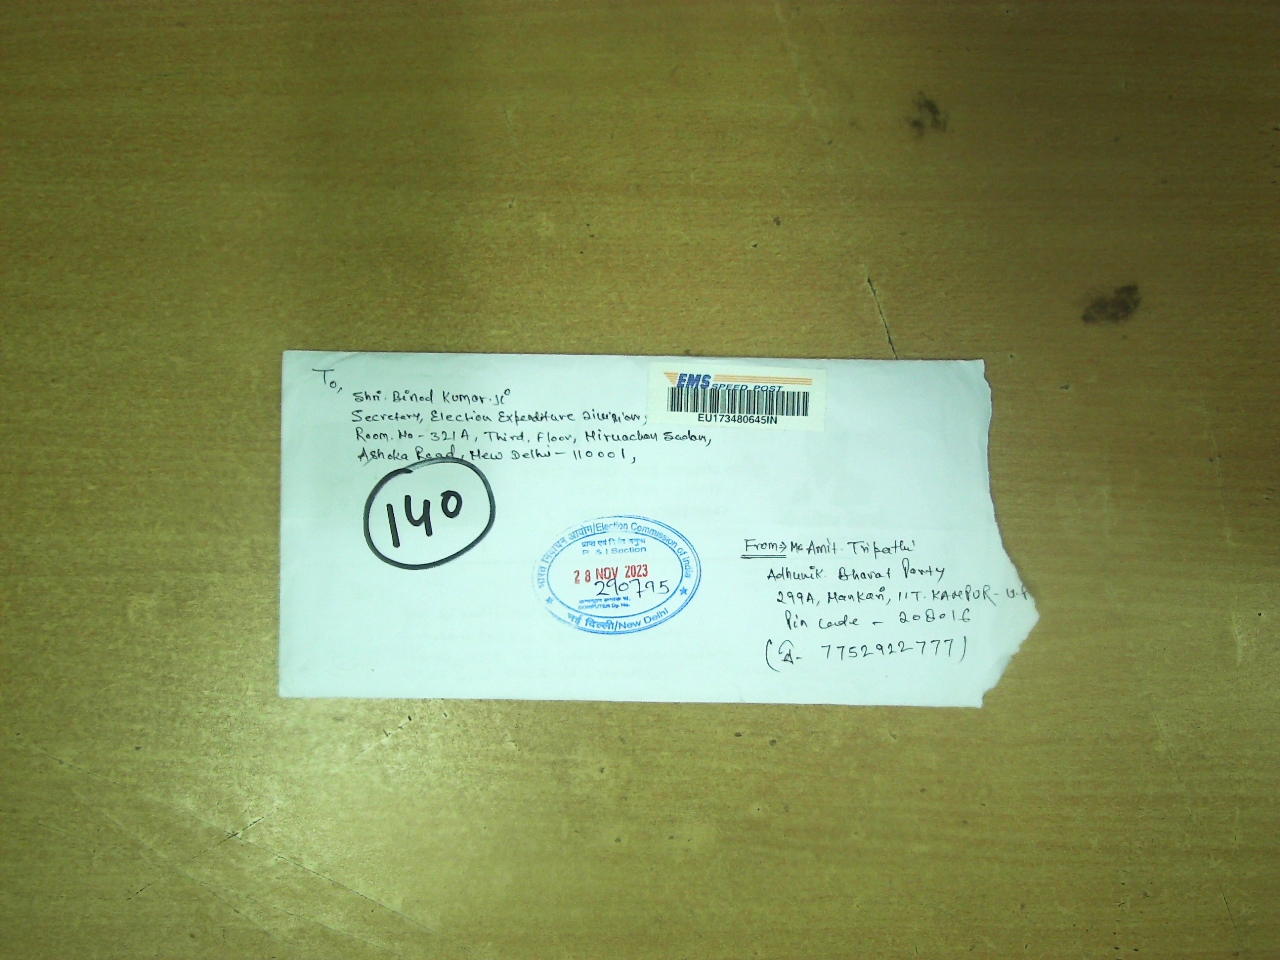 To,
Shri. Binod Kumar. Ji
Secretary, Election Expenditure Division,
Room. No - 321A, Third, Floor, Nirvachan Sadan,
Ashoka Road, New Delhi - 110001,
EMS SPEED POST
EU173480645IN
140
भारत निर्वाचन आयोग/Election Commission of India
R & I Section
28 NOV 2023
290795
COMPUTER Dy. No.
नई दिल्ली/New Delhi
From → Mr Amit. Tripathi
Adhunik. Bharat Party
299A, Nankari, IIT. KANPUR - U.P
Pin code - 208016
7752922777)